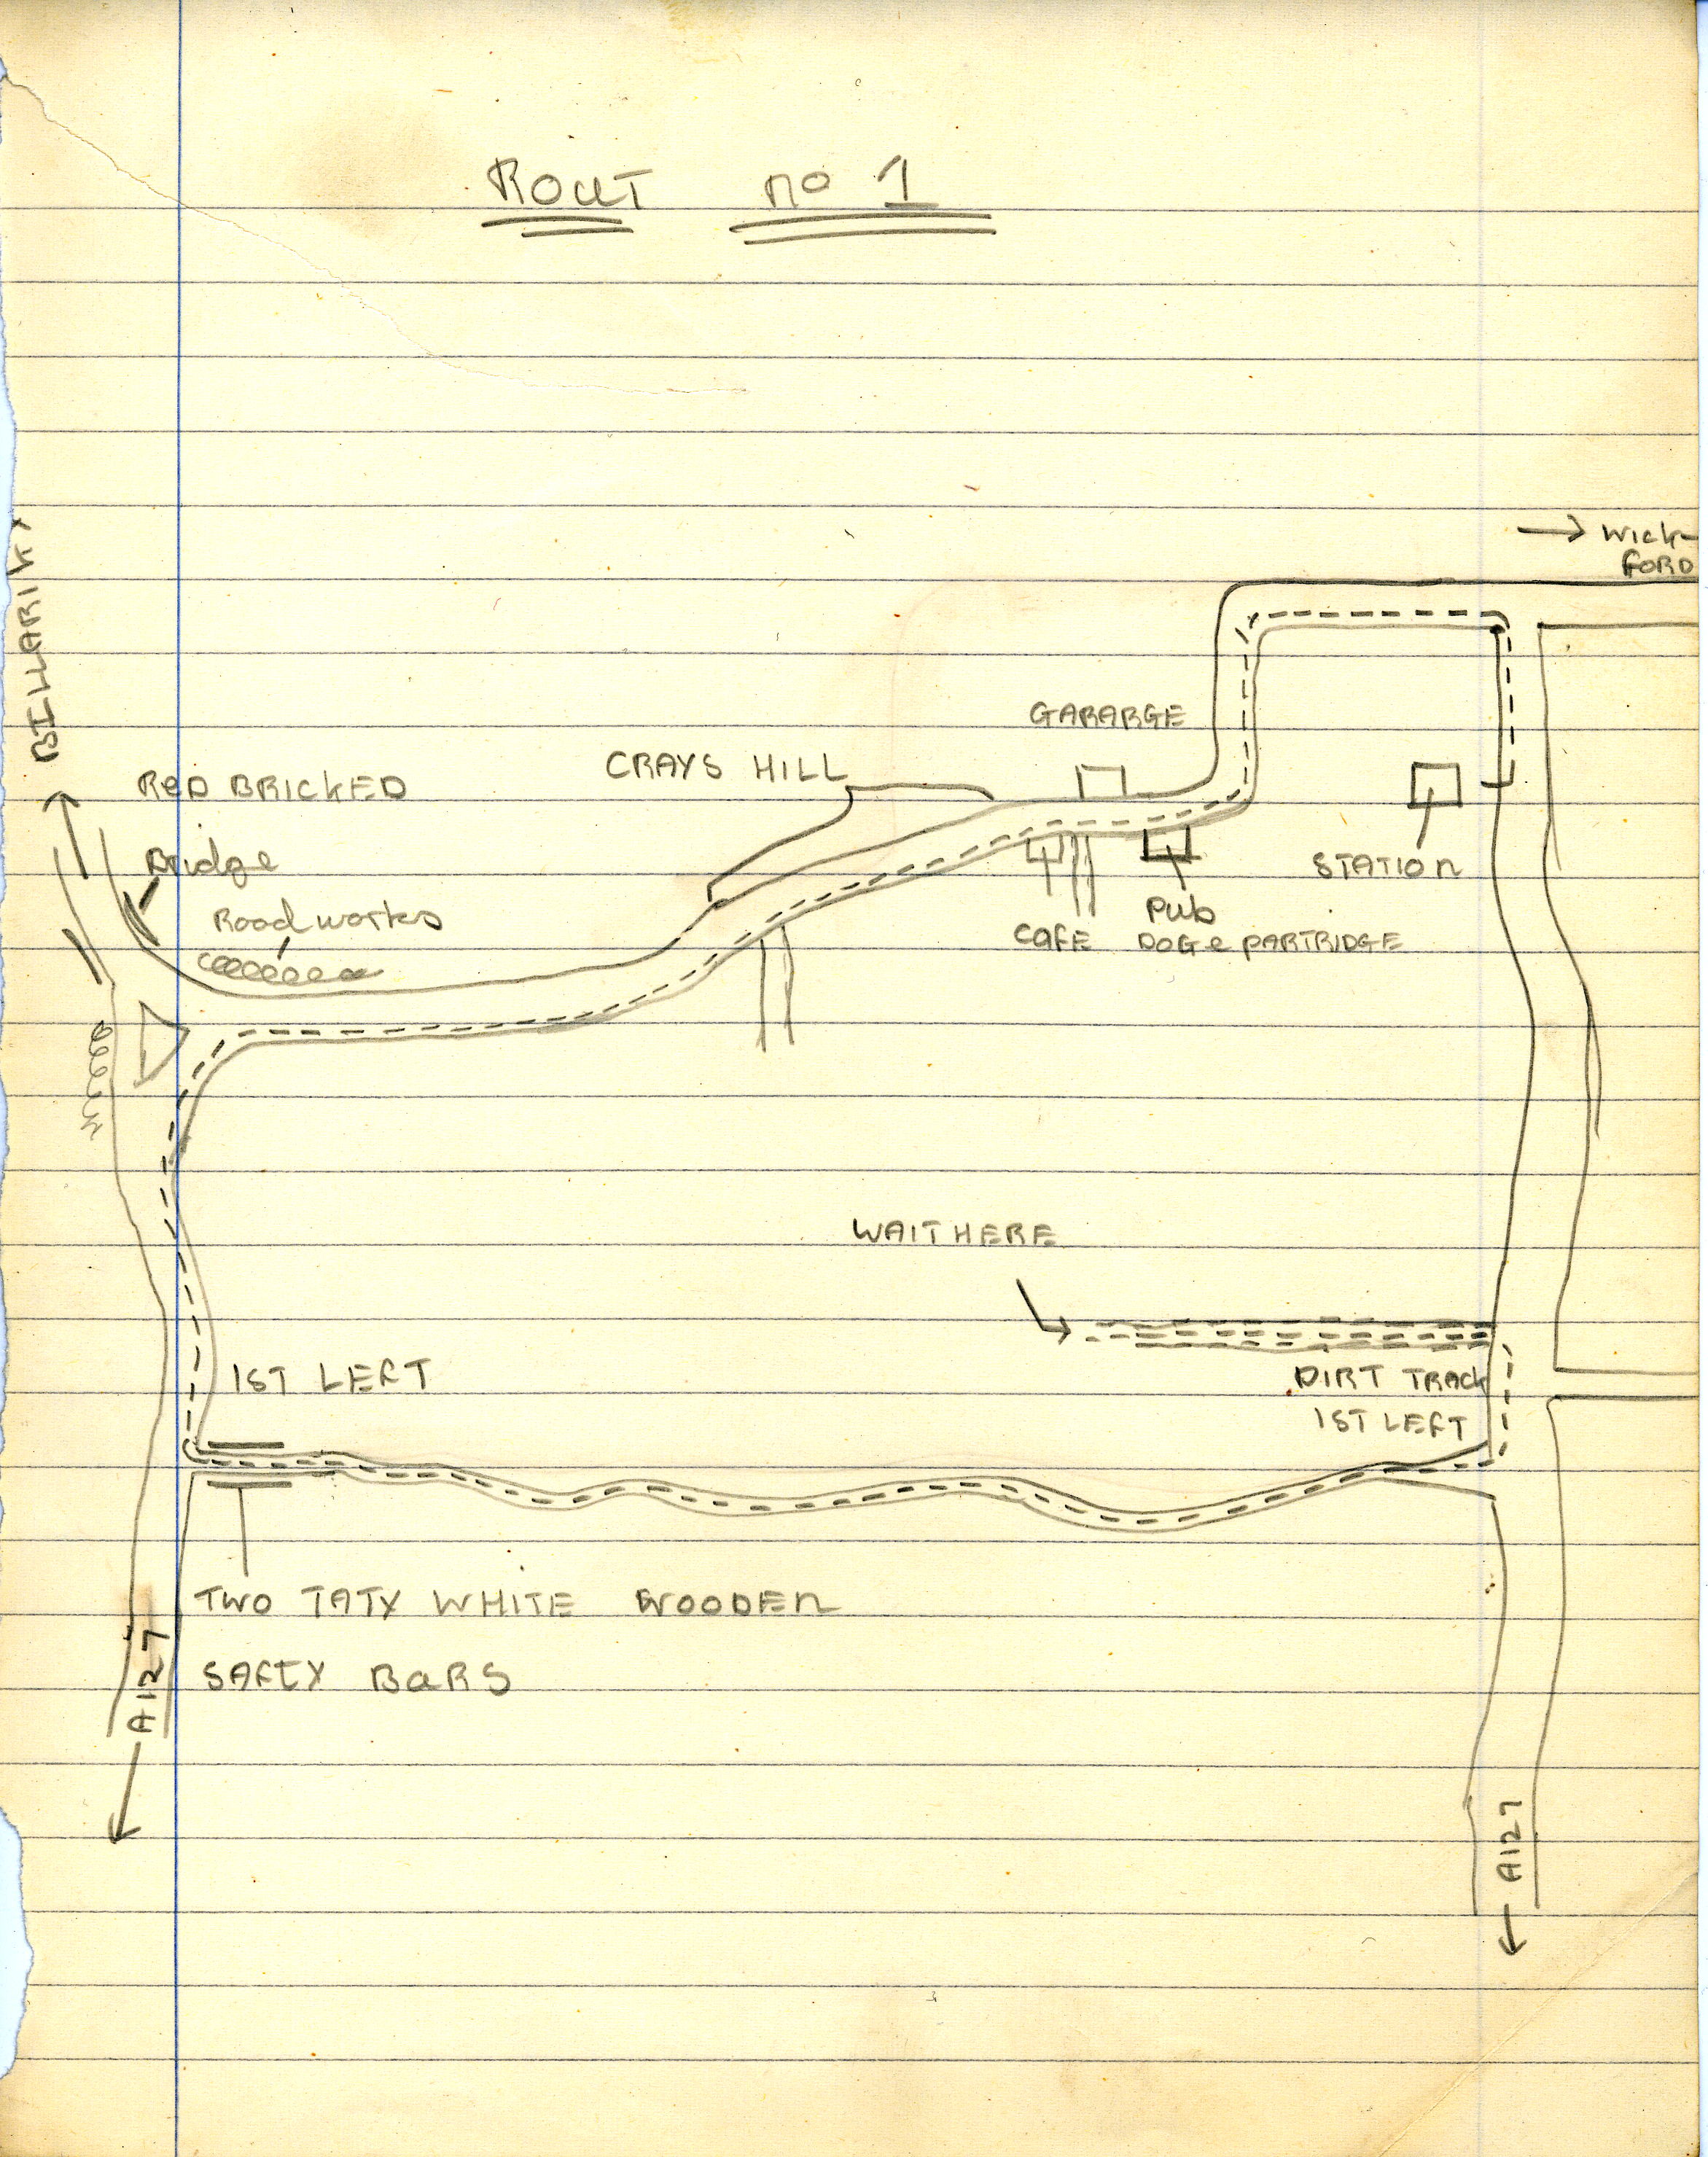 ROUT no 1
→ WICK-
FORD
BILLARIKY
GARARGE
CRAYS HILL
RED BRICKED
Bridge
Road works
STATION
CAFE
PUB
DOG & PARTRIDGE
WAIT HERE
1ST LEFT
DIRT TRACK
1ST LEFT
TWO TATY WHITE WOODEN
SAFTY BARS
A127
A127